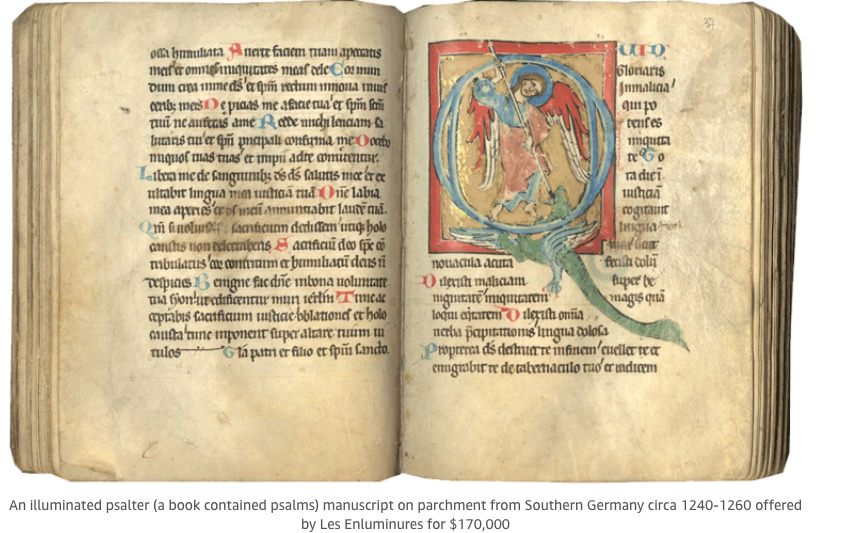 ossa humiliata Auerte faciem tuam apeccatis
meis et omnes iniquitates meas dele Cor mun
dum crea inme ds et spm rectum innoua inuis
cerib meis Ne picias me afacie tua et spm scm
tuu ne auferas ame Redde michi leticiam sa
lutaris tui et spu pncipali confirma me Docebo
iniquos uias tuas et impii adte conuertentur
Libera me de sanguinib ds ds salutis mee et ex
ultabit lingua mea iusticia tua One labia
mea aperies et os meu annunciabit laude tua
Qm si uoluisses sacrificium dedissem utiq holo
caustis non delectaberis Sacrificiu deo sps
tribulatus cor contritum et humiliatu deus n
despicies Benigne fac dne inbona uoluntate
tua syon ut edificentur muri ierlm Tunc ac
ceptabis sacrificium iusticie oblationes et holo
causta tunc imponent super altare tuum ui
tulos Gla patri et filio et spiui sancto.
37
UID
Gloriaris
Inmalicia
qui po
tens es
iniquita
te To
ta die i
iusticia
cogitauit
lingua
tua sicut
nouacula acuta fecisti dolu
Dilexisti maliciam super be
nignitate iniquitatem magis qua
loqui eqitatem Dilexisti omia
uerba pcipitationis lingua dolosa
Propterea ds destruet te infinem euellet te et
emigrabit te de tabernaculo tuo et radicem
An illuminated psalter (a book contained psalms) manuscript on parchment from Southern Germany circa 1240-1260 offered
by Les Enluminures for $170,000